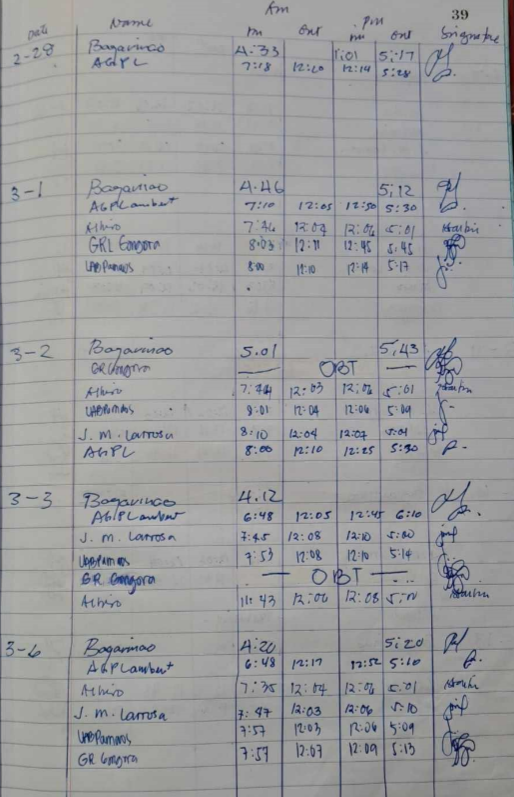 39
Am pm
Date Name in out in out Signature
2-28 Bagavinao 4:33 1:01 5:17
AGPL 7:18 12:10 12:14 5:28
3-1 Bagavinao 4.46 5:12
AGPLambert 7:10 12:05 12:50 5:30
Albiro 12:04 12:06 5:01
GRL Gongora 8:03 12:11 12:45 5:45
8:00 12:10 12:14 5:17
3-2 Bagavinao 5.01 5,43
GR Gongora — OBT —
Albiro 12:03 12:06 5:01
8:01 12:04 12:06 5:09
J. M. Larrosa 8:10 12:04 12:07 5:01
AGPL 8:00 12:10 12:25 5:30
3-3 Bagavinao 4.12
AGPLambert 6:48 12:05 12:45 6:10
J. M. Larrosa 7:45 12:08 12:10 5:00
7:53 12:08 12:10 5:14
GR Gongora — OBT —
Albiro 11:43 12:06 12:08 5:01
3-6 Bagavinao 4:20 5:20
AGPLambert 6:48 12:17 12:52 5:10
Albiro 7:35 12:04 12:06 5:01
J. M. Larrosa 7:47 12:03 12:06 5:10
7:57 12:03 12:06 5:09
GR Gongora 7:59 12:07 12:09 5:13